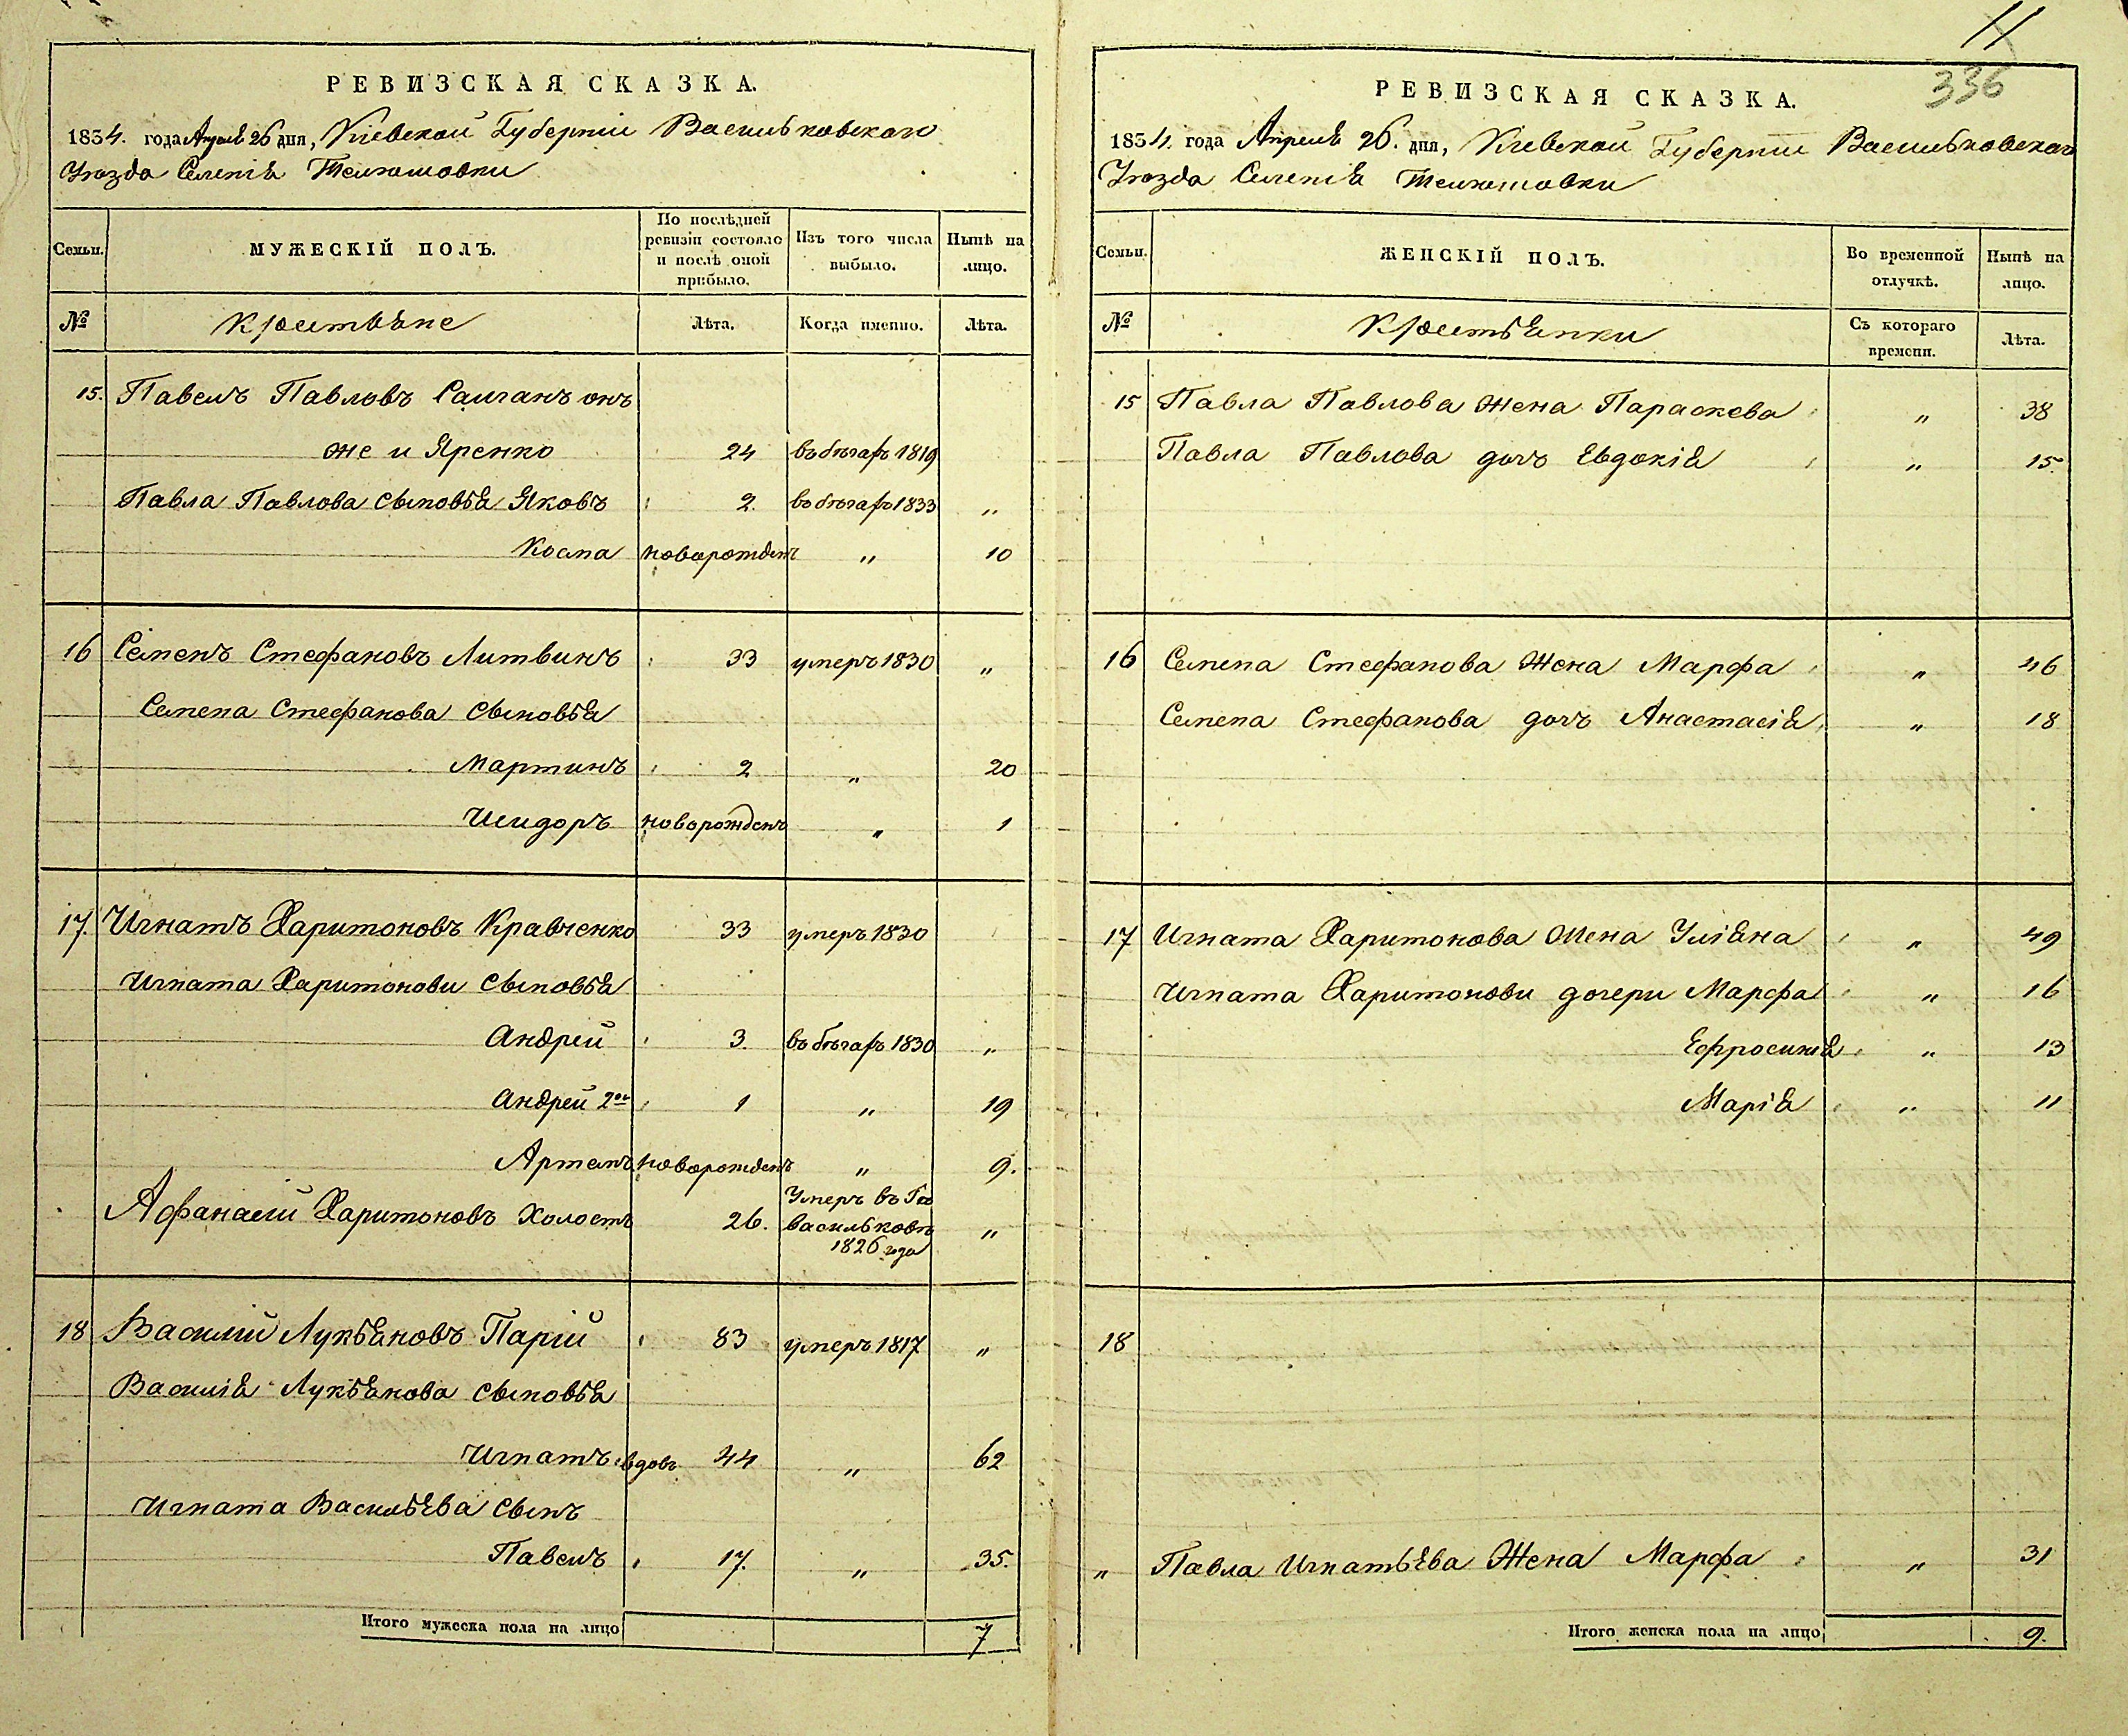 11
336
РЕВИЗСКАЯ СКАЗКА.
1834. года Апреля 26 дня, Кіевской Губерніи Васильковскаго
Уезда Селенія Телюшовки
Семьи. МУЖЕСКІЙ ПОЛЪ. По послѣдней ревизіи состояло и послѣ оной прибыло. Изъ того числа выбыло. Нынѣ на лицо.
№ Крестьяне Лѣта. Когда именно. Лѣта.
15. Павелъ Павловъ онъ
же и Яренко 24 въ бѣгахъ 1819
Павла Павлова сыновья Яковъ 2. въ бѣгахъ 1833 „
Косма новорожденъ „ 10
16 Семенъ Стефановъ Литвинъ 33 умеръ 1830 „
Семена Стефанова сыновья
Мартинъ 2 „ 20
Исидоръ новорожденъ „ 1
17. Игнатъ Харитоновъ Кравченко 33 умеръ 1830
Игната Харитонови сыновья
Андрей 3. въ бѣгахъ 1830 „
Андрей 2ой 1 „ 19
Артемъ новорожденъ „ 9.
Афанасій Харитоновъ Холостъ 26. Умеръ въ Васильковѣ 1826 года „
18 Василій Лукьяновъ Парій 83 умеръ 1817 „
Василія Лукьянова сыновья
Игнатъ вдовъ 44 „ 62
Игната Васильева сынъ
Павелъ 17. „ 35.
Итого мужеска пола на лицо 7
РЕВИЗСКАЯ СКАЗКА.
1834. года Апреля 26. дня, Кіевской Губерніи Васильковскаго
Уезда Селенія Телюшовки
Семьи. ЖЕНСКІЙ ПОЛЪ. Во временной отлучкѣ. Нынѣ на лицо.
№ Крестьянки Съ котораго времени. Лѣта.
15 Павла Павлова Жена Параскева „ 38
Павла Павлова дочь Евдокія „ 15.
16 Семена Стефанова Жена Марфа „ 46
Семена Стефанова дочь Анастасія „ 18
17 Игната Харитонова Жена Уліяна „ 49
Игната Харитонови дочери Марфа „ 16
Ефросинія „ 13
Марія „ 11
18
„ Павла Игнатьева Жена Марфа „ 31
Итого женска пола на лицо 9.